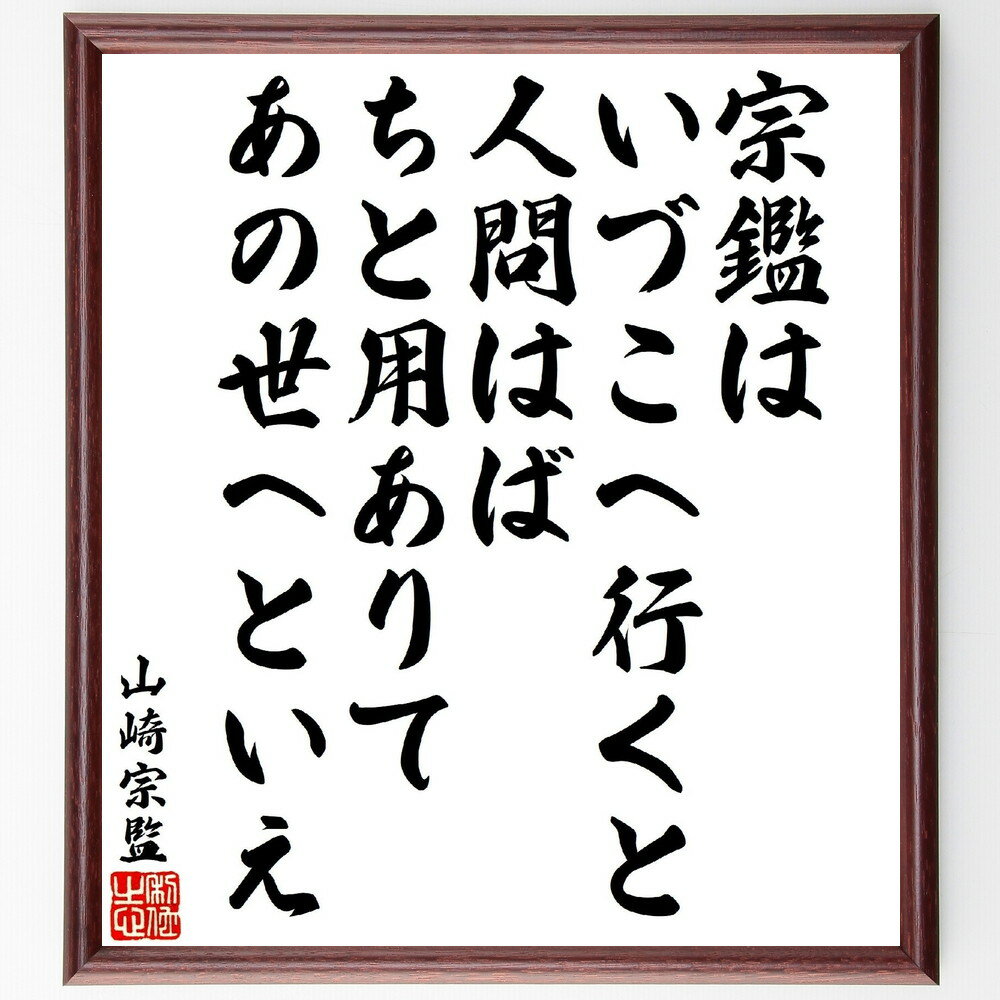 宗鑑は
いづこへ行くと
人問はば
ちと用ありて
あの世へといえ
山崎宗監